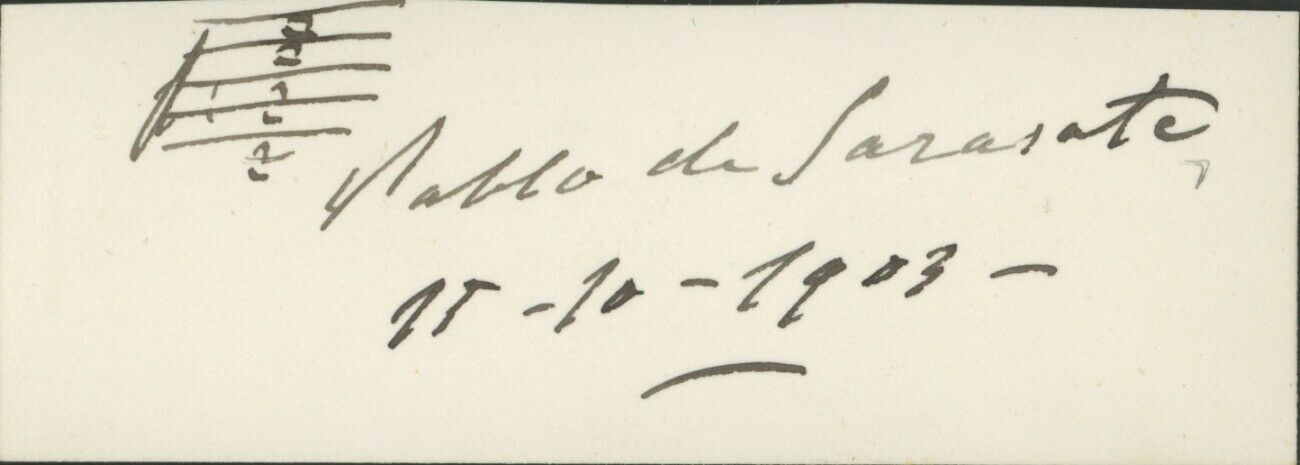 Pablo de Sarasate
15 - 10 - 1903 -